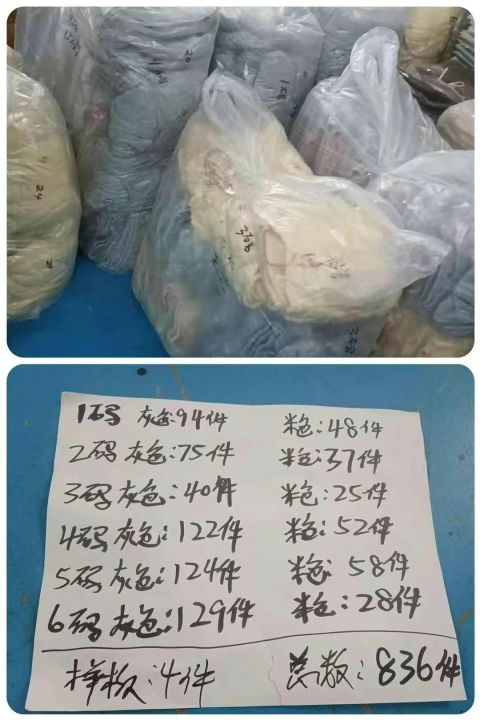 20
24
20
1码 灰色:94件 米色:48件
2码 灰色:75件 米色:37件
3码 灰色:40件 米色:25件
4码 灰色:122件 米色:52件
5码 灰色:124件 米色:58件
6码 灰色:129件 米色:28件
样板:4件 总数:836件